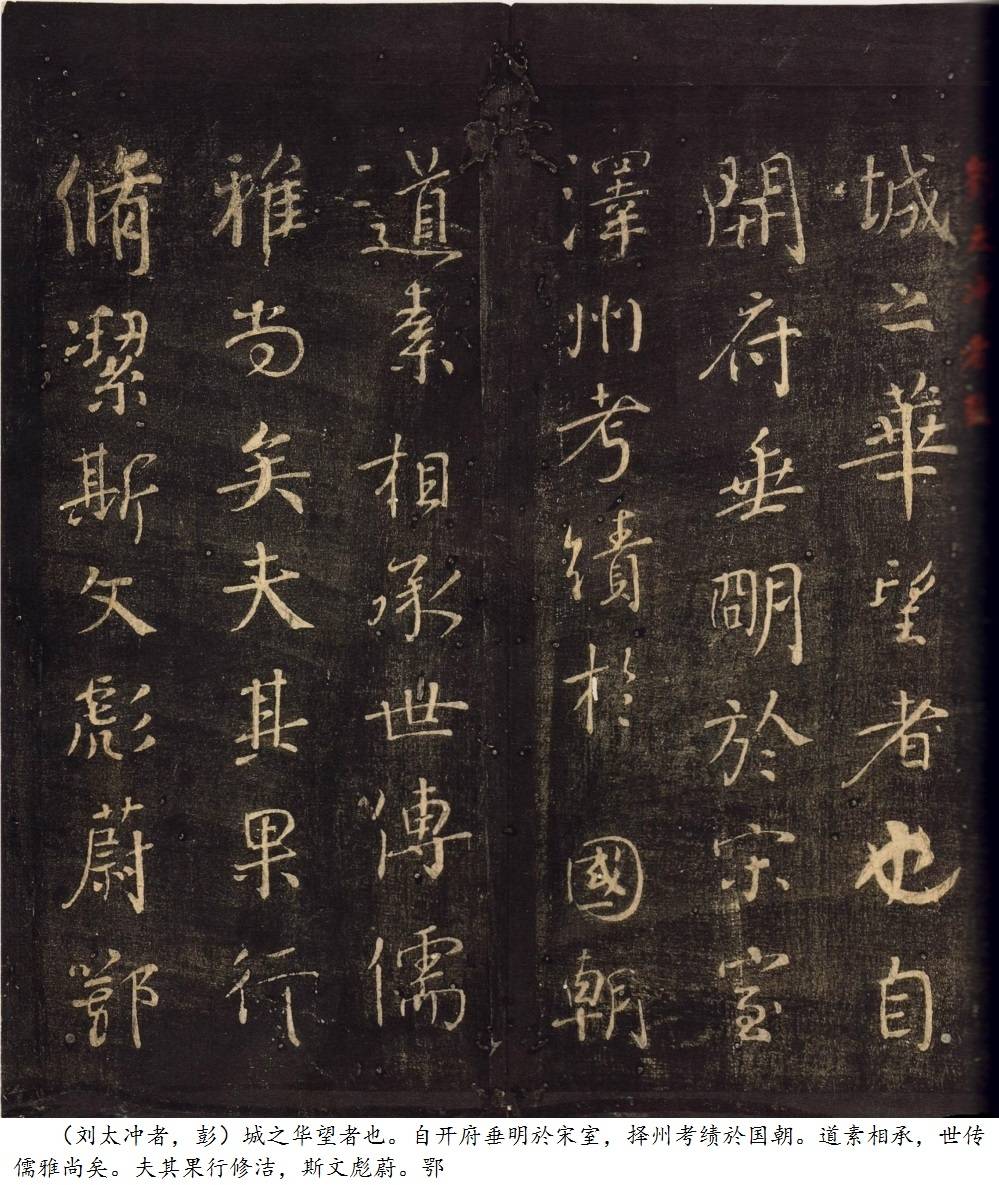 城之華望者也自
開府垂明於宋室
澤州考績於國朝
道素相承世傳儒
雅尚矣夫其果行
脩潔斯文彪蔚鄂
（刘太冲者，彭）城之华望者也。自开府垂明於宋室，择州考绩於国朝。道素相承，世传
儒雅尚矣。夫其果行修洁，斯文彪蔚。鄂